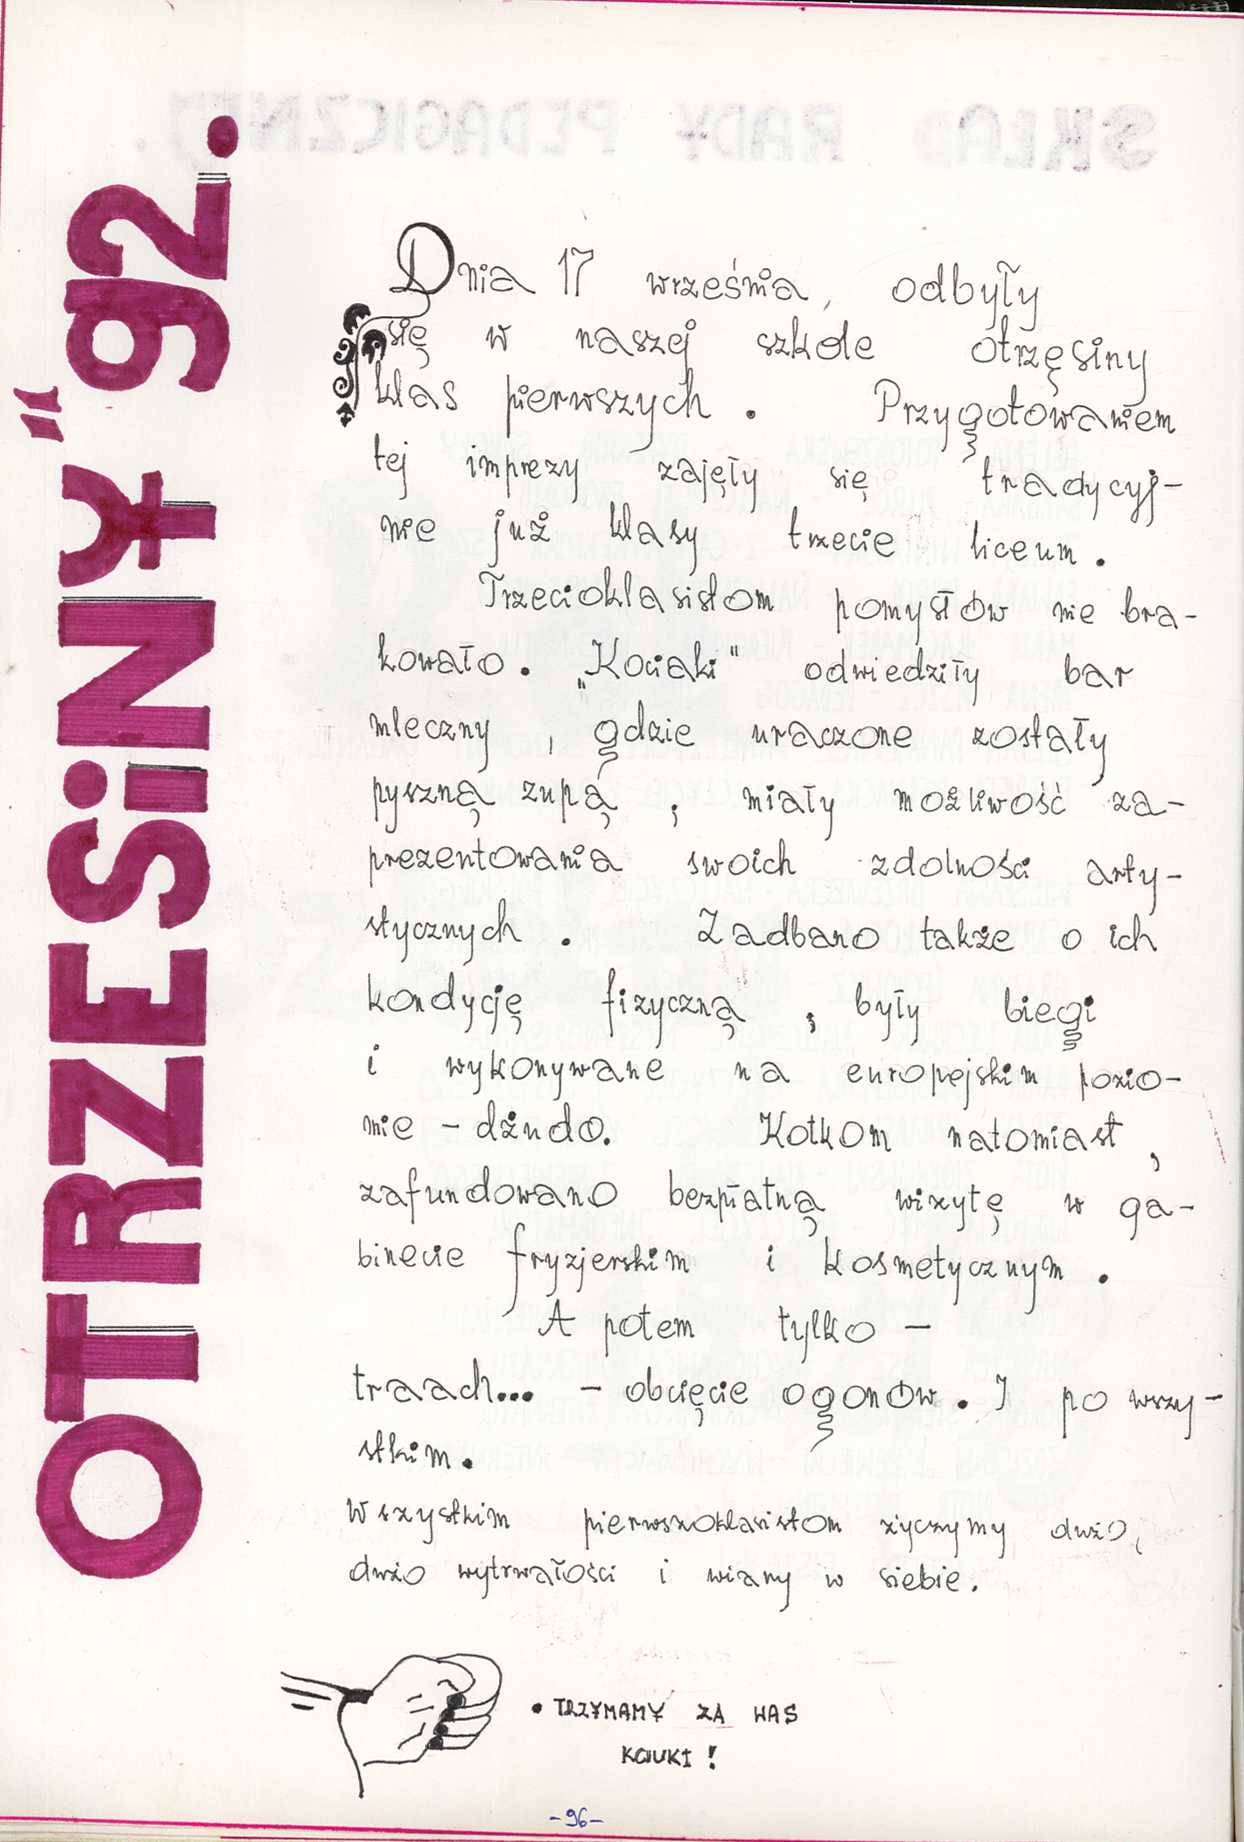 OTRZESiNY "92.
Dnia 17 września, odbyły
się w naszej szkole otrzęsiny
klas pierwszych. Przygotowaniem
tej imprezy zajęły się tradycyj-
nie już klasy trzecie liceum.
Trzecioklasistom pomysłów nie bra-
kowało. „Kociaki" odwiedziły bar
mleczny, gdzie uraczone zostały
pyszną zupą, miały możliwość za-
prezentowania swoich zdolności arty-
stycznych. Zadbano także o ich
kondycję fizyczną; były biegi
i wykonywane na europejskim pozio-
mie - dżudo. Kotkom natomiast,
zafundowano bezpłatną wizytę w ga-
binecie fryzjerskim i kosmetycznym.
A potem tylko -
traach... - obcięcie ogonów. I po wszy-
stkim.
Wszystkim pierwszoklasistom życzymy dużo,
dużo wytrwałości i wiary w siebie.
• TRZYMAMY ZA WAS
KCIUKI!
-96-
SKŁAD RADY PEDAGICZNEJ.